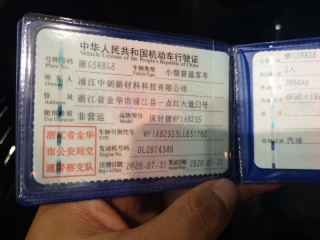 中华人民共和国机动车行驶证
Vehicle License of the People's Republic of China
号牌号码 浙G5R8G8 车辆类型 小型普通客车
Plate No. Vehicle Type
所有人 浦江中创新材料科技有限公司
Owner
住址 浙江省金华市浦江县一点红大道53号
Address
使用性质 非营运 品牌型号 保时捷WP1AB295
Use Character Model
浙江省金华
市公安局交
通警察支队
车辆识别代号
VIN
发动机号码
Engine No.
注册日期 2020-07-31 发证日期 2020-07-31
浙G5R8G8
5人
汽油